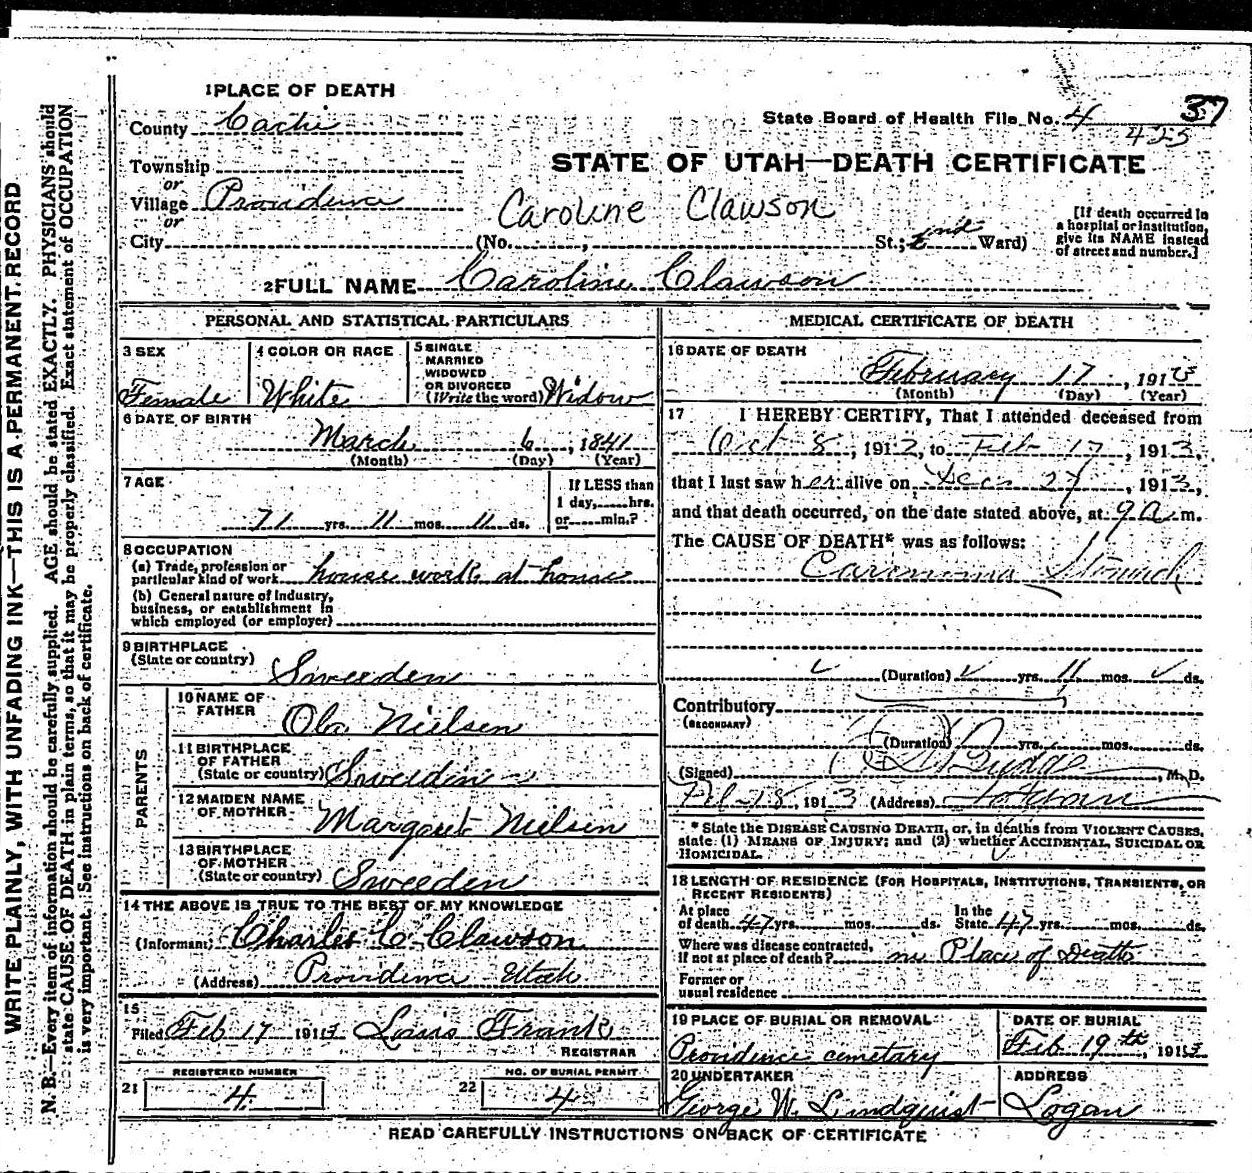 WRITE PLAINLY, WITH UNFADING INK—THIS IS A PERMANENT RECORD
N. B.—Every item of information should be carefully supplied. AGE should be stated EXACTLY. PHYSICIANS should
state CAUSE OF DEATH in plain terms, so that it may be properly classified. Exact statement of OCCUPATION
is very important. See instructions on back of certificate.
1 PLACE OF DEATH
County Cache
State Board of Health File No. 4 37
425
Township
or
Village Providence
or
City
STATE OF UTAH—DEATH CERTIFICATE
Caroline Clawson
(No. , St.; 2nd Ward)
[If death occurred in
a hospital or institution,
give its NAME instead
of street and number.]
2 FULL NAME Caroline Clawson
PERSONAL AND STATISTICAL PARTICULARS
3 SEX
Female
4 COLOR OR RACE
White
5 SINGLE
MARRIED
WIDOWED
OR DIVORCED
(Write the word) Widow
6 DATE OF BIRTH
March 6, 1841
(Month) (Day) (Year)
7 AGE
71 yrs. 11 mos. 11 ds.
If LESS than
1 day, hrs.
or min.?
8 OCCUPATION
(a) Trade, profession or
particular kind of work house work at house
(b) General nature of Industry,
business, or establishment in
which employed (or employer)
9 BIRTHPLACE
(State or country) Sweeden
PARENTS
10 NAME OF
FATHER
Ola Nielsen
11 BIRTHPLACE
OF FATHER
(State or country) Sweeden
12 MAIDEN NAME
OF MOTHER
Margaret Nielsen
13 BIRTHPLACE
OF MOTHER
(State or country) Sweeden
14 THE ABOVE IS TRUE TO THE BEST OF MY KNOWLEDGE
(Informant) Charles C. Clawson
(Address) Providence Utah
15
Filed Feb 17 1913 Louis Frank
REGISTRAR
21 REGISTERED NUMBER
4
22 NO. OF BURIAL PERMIT
4
MEDICAL CERTIFICATE OF DEATH
16 DATE OF DEATH
February 17, 1913
(Month) (Day) (Year)
17 I HEREBY CERTIFY, That I attended deceased from
Oct 8, 1912, to Feb 17, 1913,
that I last saw her alive on Dec 27, 1913,
and that death occurred, on the date stated above, at 9 a m.
The CAUSE OF DEATH* was as follows:
Carcinoma Stomach
(Duration) yrs. 11 mos. ds.
Contributory
(SECONDARY)
(Duration) yrs. mos. ds.
(Signed) Budge, M. D.
Feb 18, 1913 (Address) Logan
* State the DISEASE CAUSING DEATH, or, in deaths from VIOLENT CAUSES,
state (1) MEANS OF INJURY; and (2) whether ACCIDENTAL, SUICIDAL OR
HOMICIDAL.
18 LENGTH OF RESIDENCE (FOR HOSPITALS, INSTITUTIONS, TRANSIENTS, OR
RECENT RESIDENTS)
At place
of death 47 yrs. mos. ds. In the
State 47 yrs. mos. ds.
Where was disease contracted,
if not at place of death? Place of Death
Former or
usual residence
19 PLACE OF BURIAL OR REMOVAL
Providence cemetary
DATE OF BURIAL
Feb 19th, 1913
20 UNDERTAKER
George W. Lindquist
ADDRESS
Logan
READ CAREFULLY INSTRUCTIONS ON BACK OF CERTIFICATE